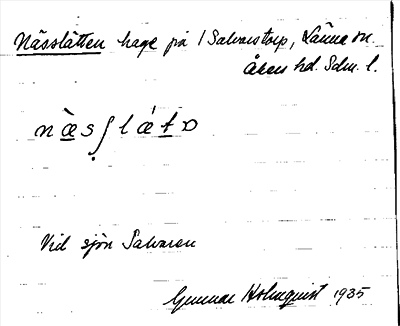 Nässlätten hage på 1 Salvarstorp, Länna sn.
Åkers hd. Sdm. l.
næ̀sʃlǽtɒ
Vid sjön Salvaren
Gunnar Holmquist 1935